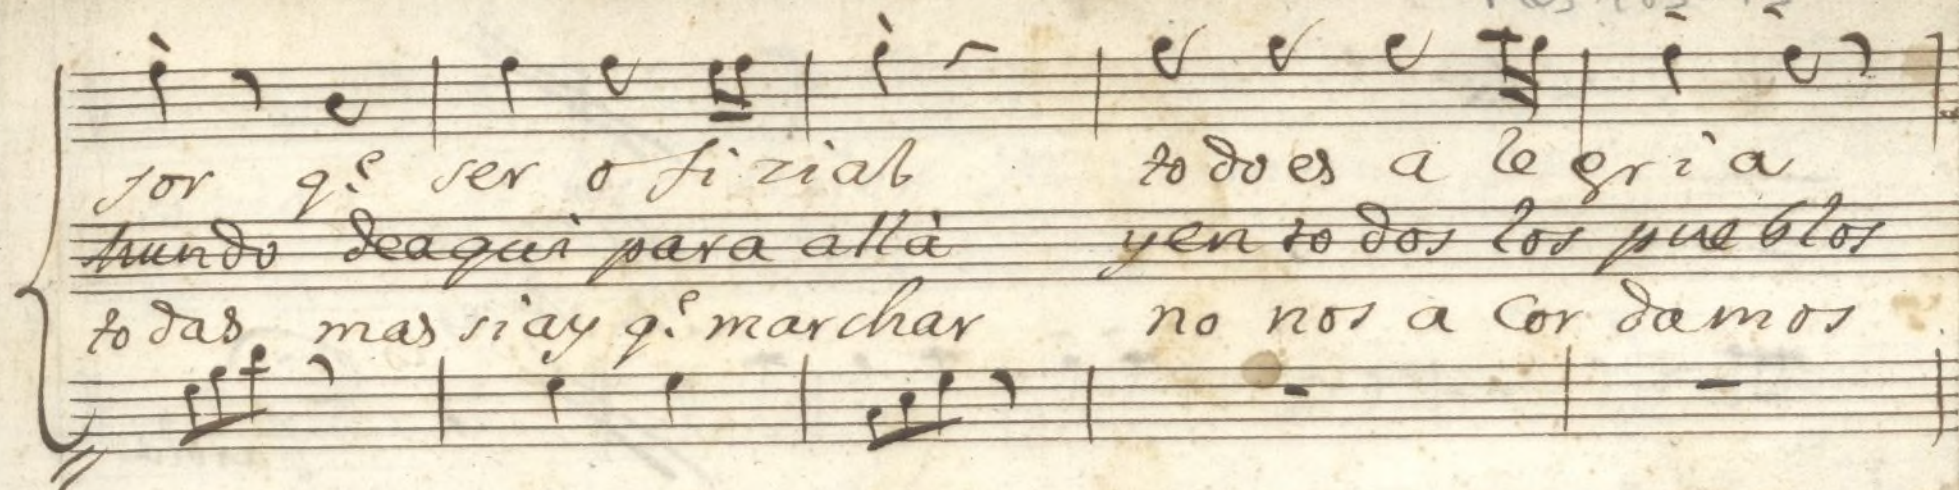 sor q.e ser o fi zial to do es a le gri a
mundo de aqui para allà y en to dos los pue blos
to das mas si ay q.e marchar no nos a Cor da mos